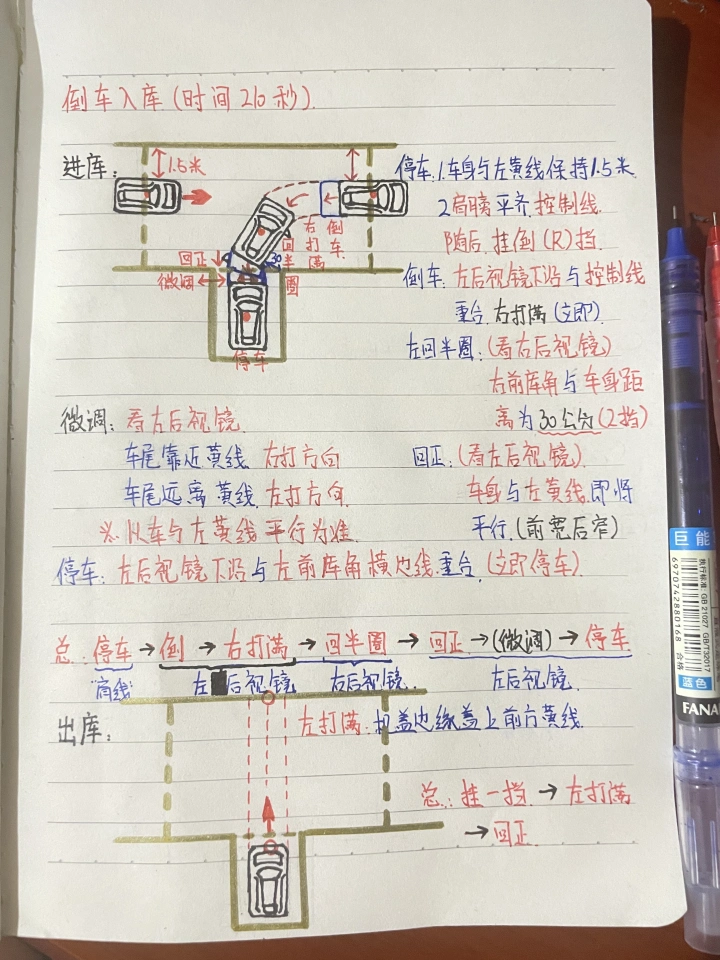 倒车入库(时间210秒).
进库:
1.5米
停车.1.车身与左黄线保持1.5米.
2肩膀平齐控制线.
随后.挂倒(R)挡.
右倒
打车.
满
回
半
圈
30
回正
微调
停车
倒车:左后视镜下沿与控制线
重合.右打满(立即).
左回半圈:(看右后视镜)
右前库角与车身距
离为30公分(2挡)
微调:看左后视镜.
车尾靠近黄线.右打方向
车尾远离黄线.左打方向.
※.以车与左黄线平行为准.
回正:(看左后视镜).
车身与左黄线.即将
平行.(前宽后窄)
停车:左后视镜下沿与左前库角横边线重合.(立即停车).
总:停车→倒→右打满→回半圈→回正→(微调)→停车
"肩线"
左后视镜
右后视镜.
左后视镜.
出库:
左打满:机盖边缘盖上前方黄线.
总.:挂一挡→左打满
→回正.
巨能
执行标准:GB 21027 GB/T32017
6970742880168 合格
蓝色
FANA